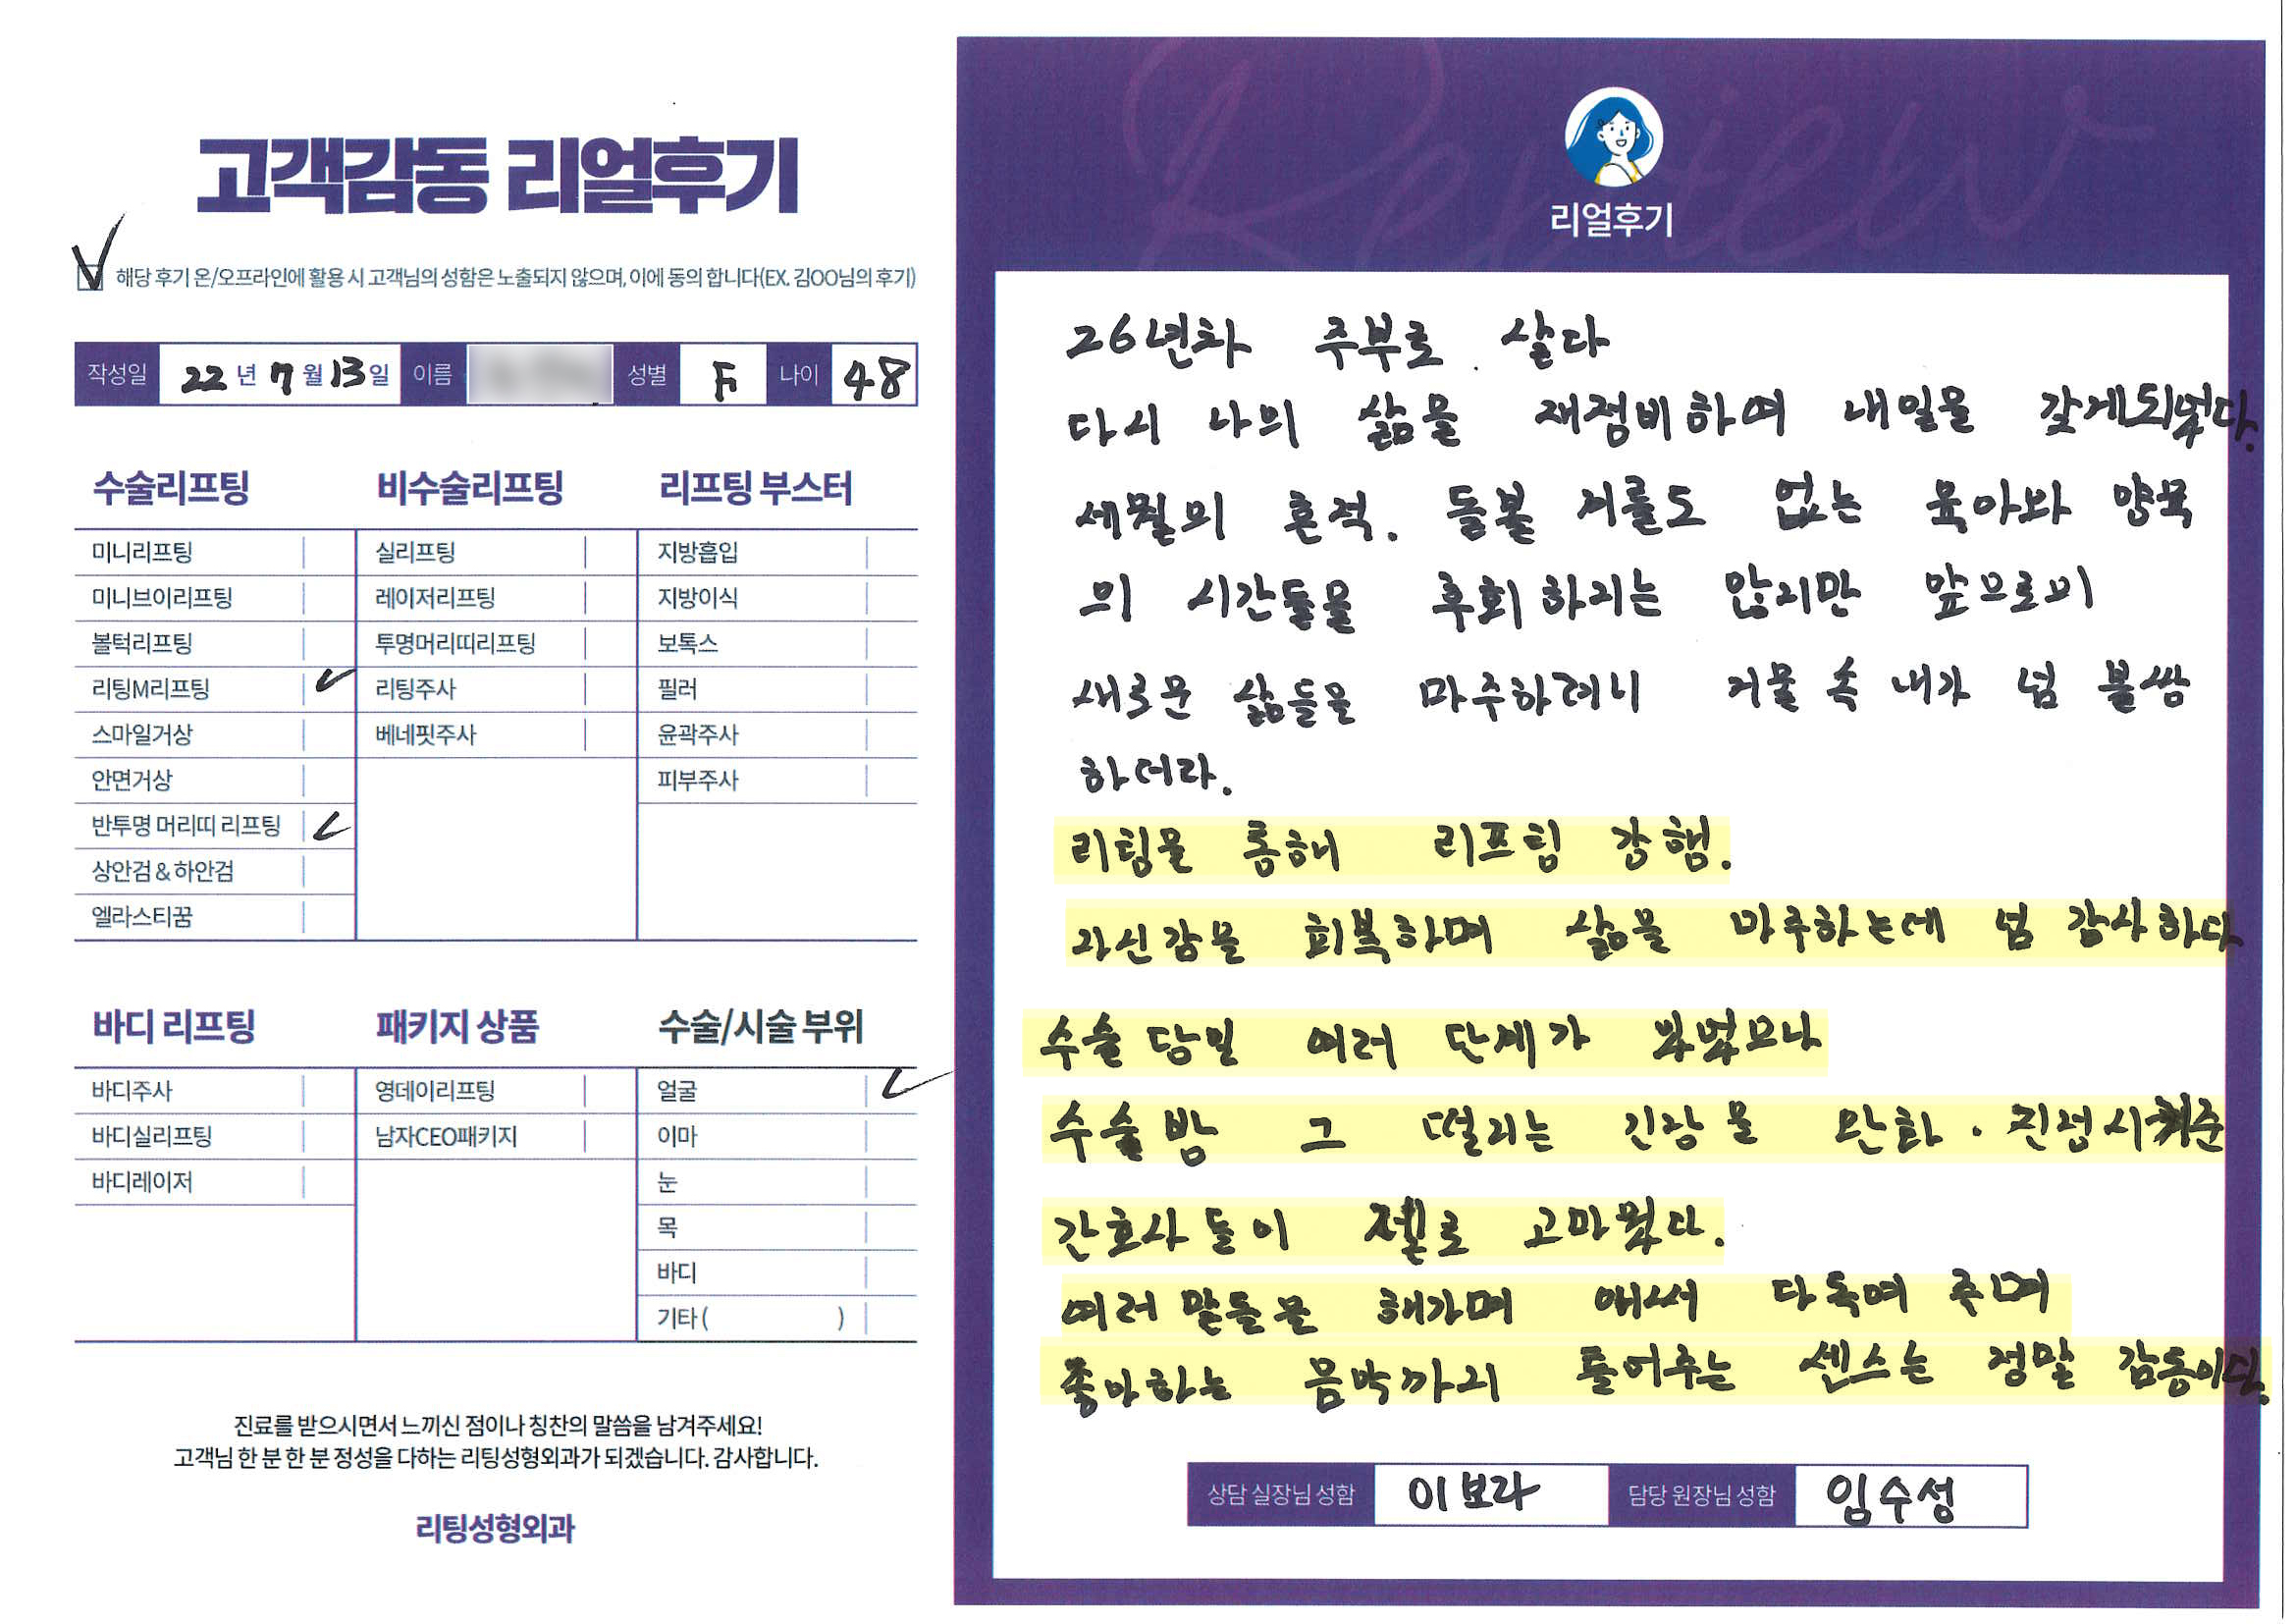 고객감동 리얼후기
해당 후기 온/오프라인에 활용 시 고객님의 성함은 노출되지 않으며, 이에 동의 합니다(EX. 김OO님의 후기)
작성일 22 년 7 월 13 일 이름 성별 F 나이 48
수술리프팅 비수술리프팅 리프팅 부스터
미니리프팅 실리프팅 지방흡입
미니브이리프팅 레이저리프팅 지방이식
볼턱리프팅 투명머리띠리프팅 보톡스
리팅M리프팅 리팅주사 필러
스마일거상 베네핏주사 윤곽주사
안면거상 피부주사
반투명 머리띠 리프팅
상안검 & 하안검
엘라스티꿈
바디 리프팅 패키지 상품 수술/시술 부위
바디주사 영데이리프팅 얼굴
바디실리프팅 남자CEO패키지 이마
바디레이저 눈
목
바디
기타 ( )
진료를 받으시면서 느끼신 점이나 칭찬의 말씀을 남겨주세요!
고객님 한 분 한 분 정성을 다하는 리팅성형외과가 되겠습니다. 감사합니다.
리팅성형외과
Review
리얼후기
26년차 주부로 살다
다시 나의 삶을 재정비하며 내일을 갖게되었다.
세월의 흔적. 돌볼 겨를도 없는 육아와 양육
의 시간들을 후회하지는 않지만 앞으로의
새로운 삶들을 마주하려니 거울 속 내가 넘 불쌍
하더라.
리팅을 통해 리프팅 강행.
자신감을 회복하며 삶을 마주하는데 넘 감사하다
수술 당일 여러 단계가 있었으나
수술방 그 떨리는 긴장을 완화. 진정시켜준
간호사들이 젤로 고마웠다.
여러 말들을 해가며 애써 다독여 주며
좋아하는 음악까지 틀어주는 센스는 정말 감동이다.
상담 실장님 성함 이보라 담당 원장님 성함 임수성